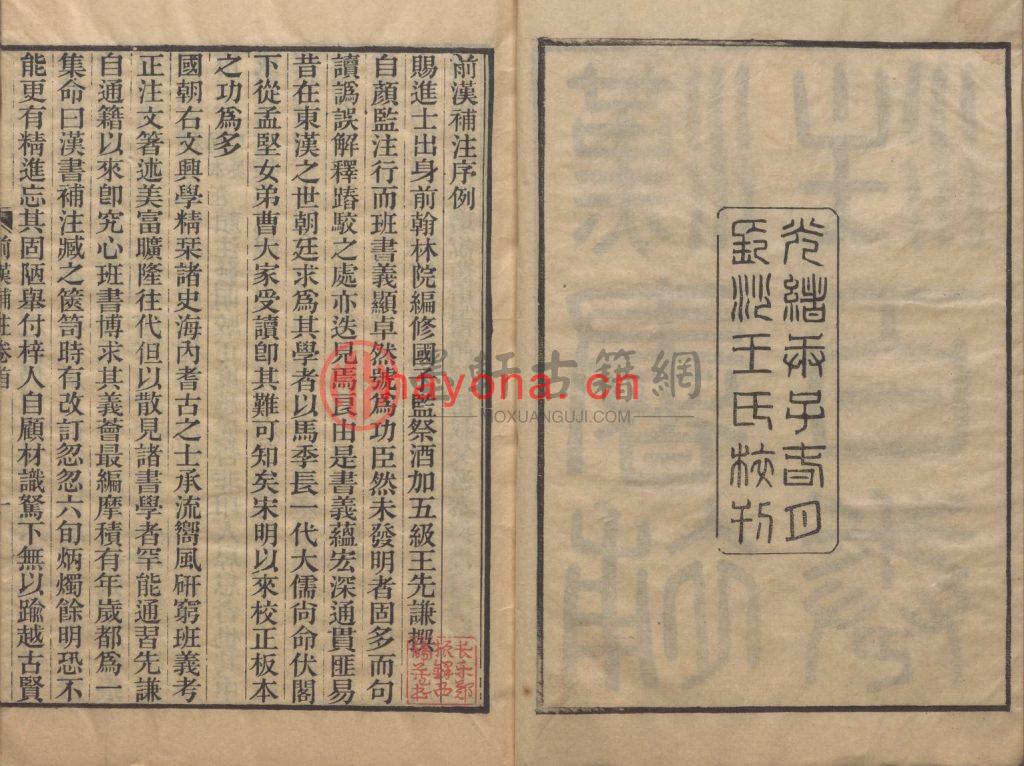 光緒庚子春月
長沙王氏校刊
前漢補注序例
賜進士出身前翰林院編修國子監祭酒加五級王先謙撰
自顏監注行而班書義顯卓然號為功臣然未發明者固多而句
讀譌誤解釋踳駮之處亦迭見焉良由是書義蘊宏深通貫匪易
昔在東漢之世朝廷求為其學者以馬季長一代大儒尙命伏閣
下從孟堅女弟曹大家受讀卽其難可知矣宋明以來校正板本
之功為多
國朝右文興學精栞諸史海內耆古之士承流嚮風硏窮班義考
正注文箸述美富曠隆往代但以散見諸書學者罕能通習先謙
自通籍以來卽究心班書博求其義薈最編摩積有年歲都為一
集命曰漢書補注臧之篋笥時有改訂忽忽六旬炳燭餘明恐不
能更有精進忘其固陋舉付梓人自顧材識駑下無以踰越古賢
前漢補注卷首
一
長樂鄭
振鐸西
諦藏書
墨軒古籍網
hayona.cn
MOXUANGUJI.COM